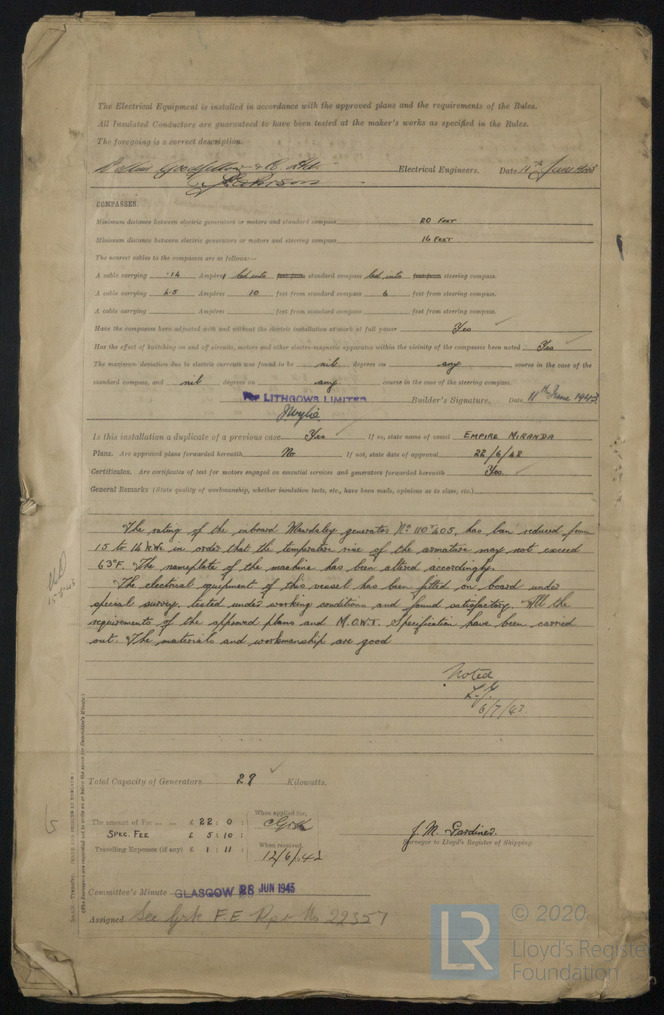 The Electrical Equipment is installed in accordance with the approved plans and the requirements of the Rules.
All Insulated Conductors are guaranteed to have been tested at the maker's works as specified in the Rules.
The foregoing is a correct description.
Electrical Engineers. Date 11th June 1943
COMPASSES.
Minimum distance between electric generators or motors and standard compass 20 FEET
Minimum distance between electric generators or motors and steering compass 16 FEET
The nearest cables to the compasses are as follows:—
A cable carrying .14 Ampères led into feet from standard compass led into feet from steering compass.
A cable carrying 6.5 Ampères 10 feet from standard compass 6 feet from steering compass.
A cable carrying Ampères feet from standard compass feet from steering compass.
Have the compasses been adjusted with and without the electric installation at work at full power Yes
Has the effect of switching on and off circuits, motors and other electro-magnetic apparatus within the vicinity of the compasses been noted Yes
The maximum deviation due to electric currents was found to be nil degrees on any course in the case of the
standard compass, and nil degrees on any course in the case of the steering compass.
For LITHGOWS LIMITED Builder's Signature. Date 11th June 1943
JWylie
Is this installation a duplicate of a previous case Yes If so, state name of vessel EMPIRE MIRANDA
Plans. Are approved plans forwarded herewith No If not, state date of approval 22/6/42
Certificates. Are certificates of test for motors engaged on essential services and generators forwarded herewith Yes.
General Remarks (State quality of workmanship, whether insulation tests, etc., have been made, opinions as to class, etc.)
The rating of the inboard Mawdsley generator No. 110705, has been reduced from
15 to 14 k.w. in order that the temperature rise of the armature may not exceed
63°F. The nameplate of the machine has been altered accordingly.
The electrical equipment of this vessel has been fitted on board under
special survey, tested under working conditions and found satisfactory. All the
requirements of the approved plans and M.O.W.T. Specification have been carried
out. The materials and workmanship are good
Noted
6/7/43.
Total Capacity of Generators 29 Kilowatts.
The amount of Fee £ 22 : 0 : When applied for,
SPEC. FEE £ 5 : 10 :
Travelling Expenses (if any) £ 1 : 11 : When received,
12/6/43
J. M. Gardiner
Surveyor to Lloyd's Register of Shipping.
Committee's Minute GLASGOW JUN 1943
Assigned See Grk F.E Rpt. No 22357
LR
© 2020
Lloyd's Register
Foundation